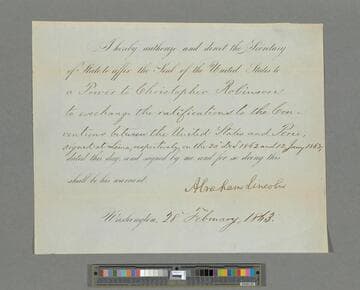 I hereby authorize and direct the Secretary
of State to affix the Seal of the United States to
a Power to Christopher Robinson
to exchange the ratifications to the Con-
ventions between the United States and Peru,
signed at Lima, respectively, on the 20 Dec 1862 and 12 Jany 1863,
dated this day, and signed by me and for so doing this
shall be his warrant.
Abraham Lincoln
Washington, 28 February, 1863.